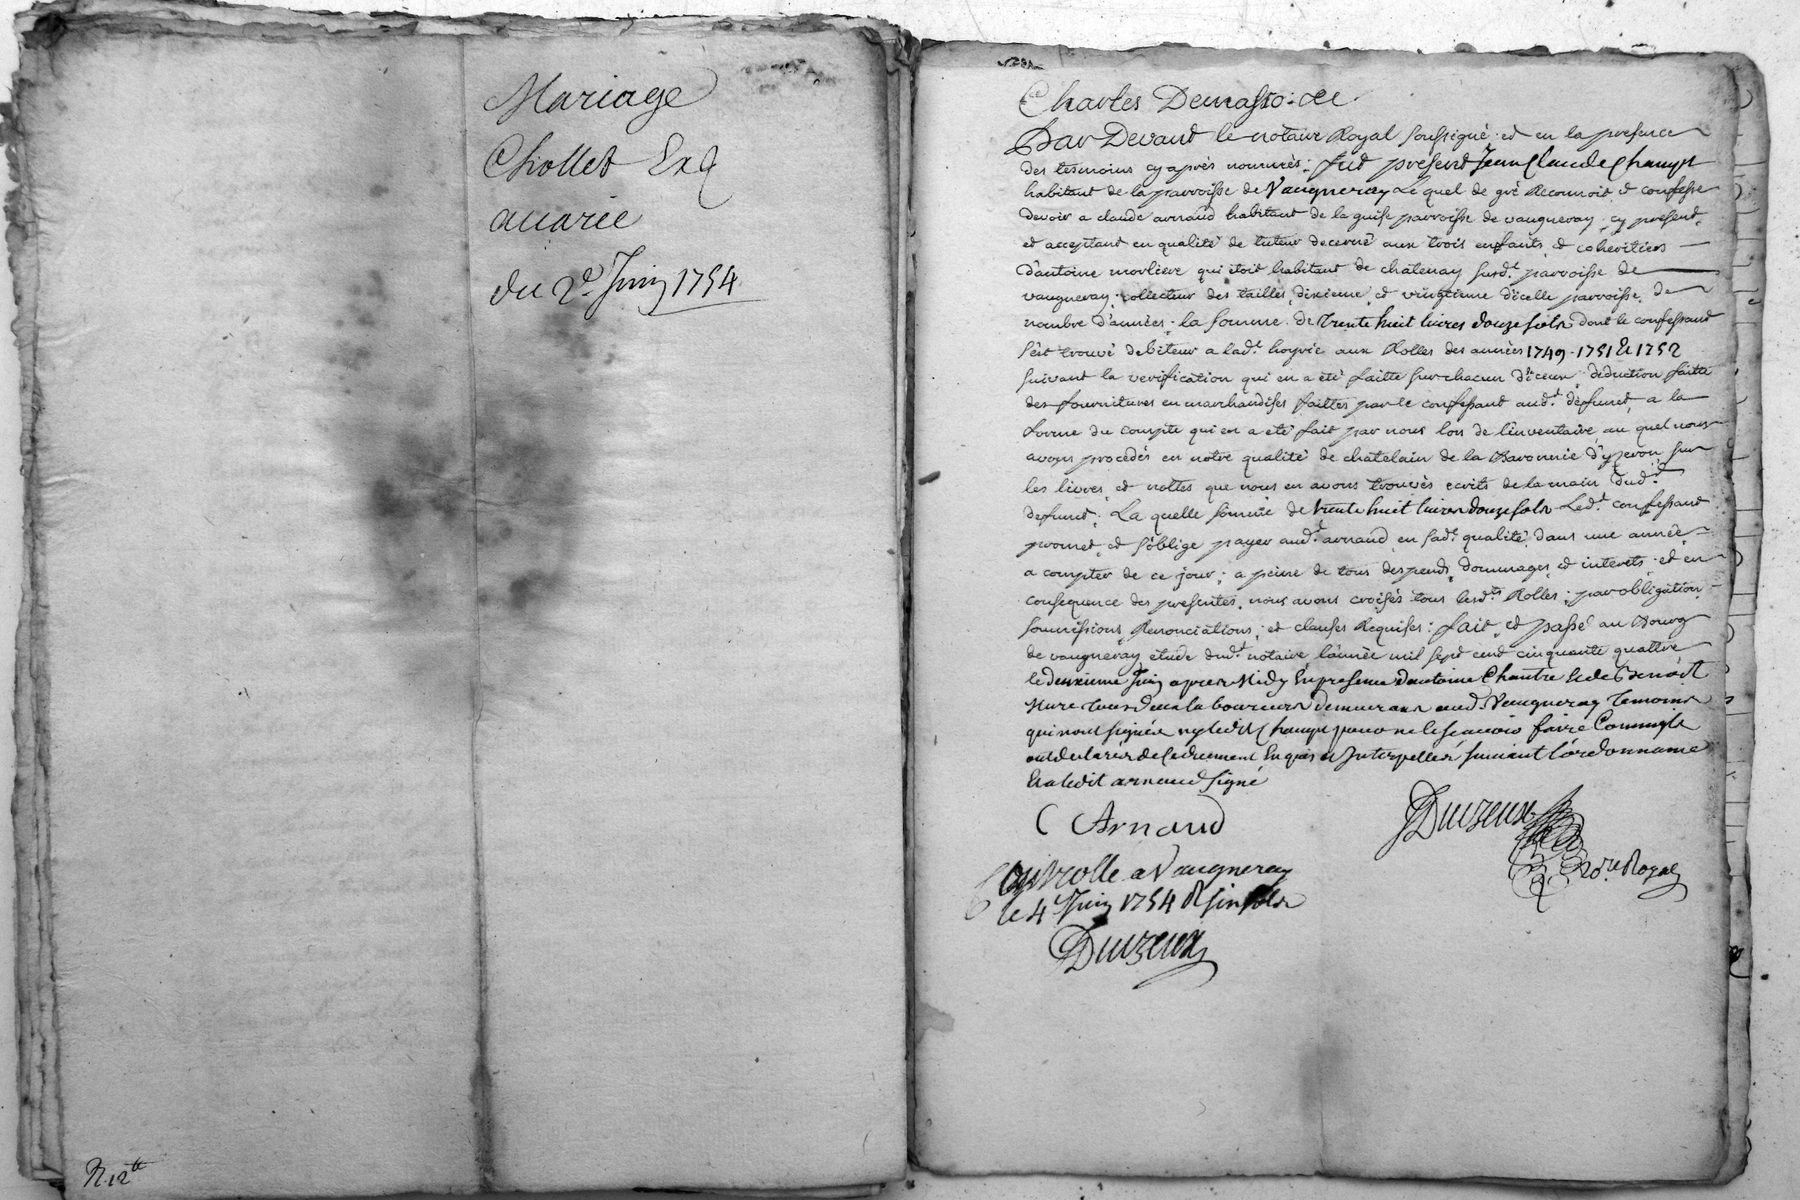 Mariage
Chollet Et
avarie
du 2d. Juin 1754
R. 12tt
Charles
Par Devant le notaire Royal soussigné et en la presence
des tesmoins cy après nommés: fut present Jean Claude Chanyt
habitant de la parroisse de Vaugneray Le quel de gré Reconnoit & confesse
devoir a claude arnaud habitant de la guise parroisse de vaugneray, cy present,
et acceptant en qualité de tuteur decerné aux trois enfants & cohéritiers
d'antoine morliere qui étoit habitant de châtenay susd.t parroisse de
vaugneray; collecteur des tailles, dixieme, et vingtieme d'icelle parroisse, de
nombre d'années; la somme de trente huit livres douze sols dont le confessant
s'est trouvé debiteur a lad.t hoyrie aux Rolles des années 1749 - 1751 & 1752
suivant la verification qui en a été faitte sur chacun d'iceux; deduction faitte
des fournitures en marchandises faittes par le confessant aud.t defunct, a la
forme du compte qui en a eté fait par nous lors de l'inventaire au quel nous
avons procedés en notre qualité de chatelain de la Baronnie d'yzeron, sur
les livres, et nottes que nous en avons trouvés ecrits de la main dud.t
defunct; La quelle somme de trente huit livres douze sols Led.t confessant
promet, et s'oblige payer aud.t arnaud, en sad.t qualité, dans une année,
a compter de ce jour; a peine de tous despends, dommages, et interets; et en
consequence des presentes, nous avons croisés tous lesd.ts Rolles; par obligation,
soumissions, Renonciations; et clauses Requises: fait, et passé au Bourg
de vaugneray etude dud.t notaire, l'année mil sept cent cinquante quattre
le deuxieme Juin apres Midy En presence d'antoine Chantre & de Benoit
Mure tous deux laboureurs demeurans aud. Vaugneray temoins
qui n'ont signés ny ledit Chanyt pour ne le scavoir faire Comme ils
ont declarés de ce duement Enquis & Interpellés suivant l'ordonnance
Et a ledit arnaud signé
C Arnaud
Duizeux
No.re Royal
Controllé a Vaugneray
le 4e Juin 1754 R. six sols
Duizeux